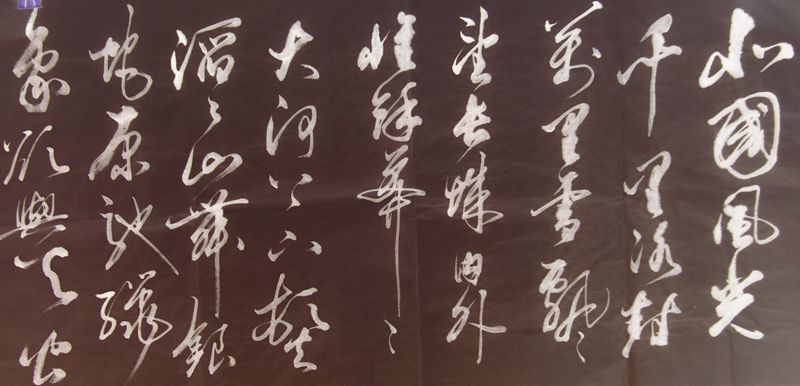 北國風光
千里冰封
萬里雪飄
望長城內外
惟餘莽〻
大河上下頓失
滔〻山舞銀
蛇原馳蠟
象欲與天公